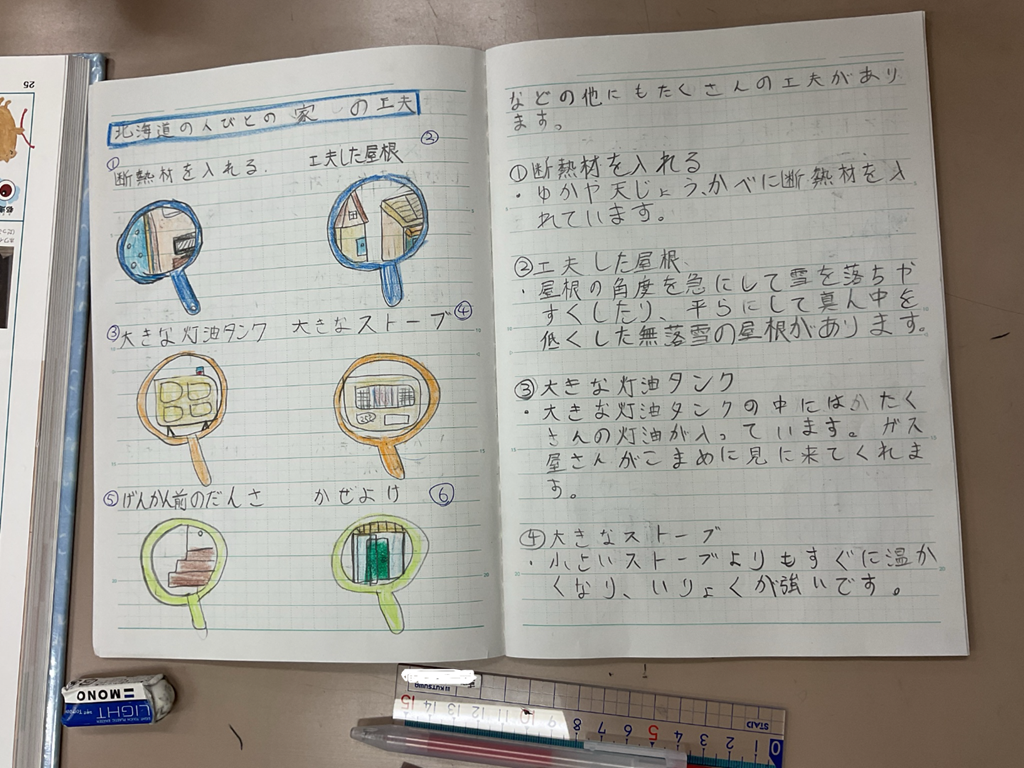 北海道の人びとの家の工夫
① 断熱材を入れる.
工夫した屋根 ②
③ 大きな灯油タンク
大きなストーブ ④
⑤ げんかん前のだんさ
かぜよけ ⑥
などの他にもたくさんの工夫があり
ます。
①断熱材を入れる
・ゆかや天じょう、かべに断熱材を入
れています。
②工夫した屋根
・屋根の角度を急にして雪を落ちや
すくしたり、平らにして真ん中を
低くした無落雪の屋根があります。
③大きな灯油タンク
・大きな灯油タンクの中にはかたく
さんの灯油が入っています。ガス
屋さんがこまめに見に来てくれま
す。
④大きなストーブ
・小さいストーブよりもすぐに温か
くなり、いりょくが強いです。
25
MONO
LIGHT
KUTSUWA
15 14 13 12 11 10 9 8 7 6 5 4 3 2 1 0
STAD